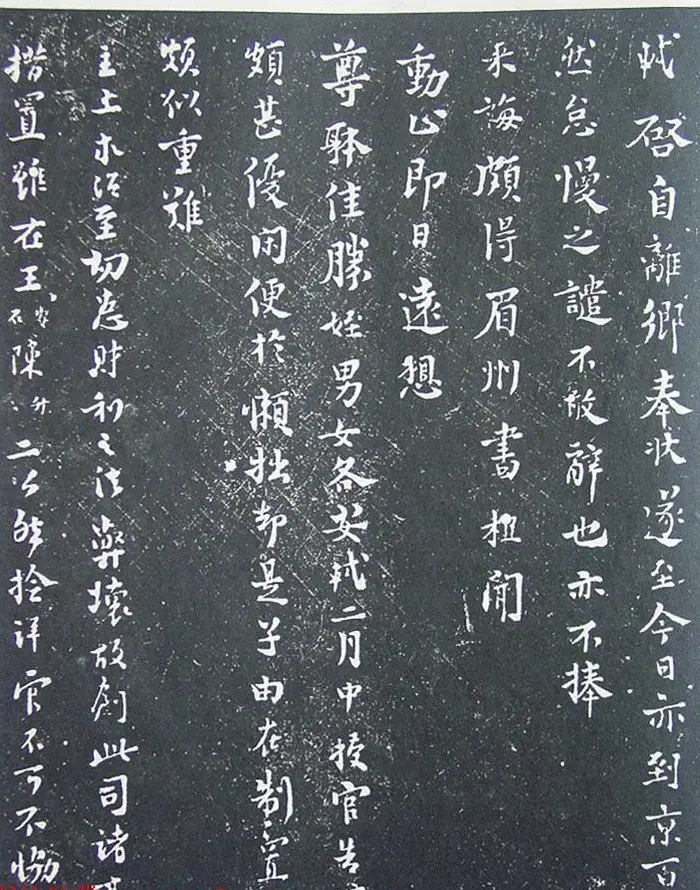 軾啓自離鄉奉狀遂至今日亦到京百
然怠慢之譴不敢辭也亦不捧
來誨頗得眉州書極聞
動止即日遠想
尊躰佳勝姪男女各安軾二月中授官告
頗甚優閑便於懶拙却是子由在制置
頗似重難
主上求治至切患財利之法弊壞故創此司諸
措置雖在王安石陳升之二公然檢詳官不可不協